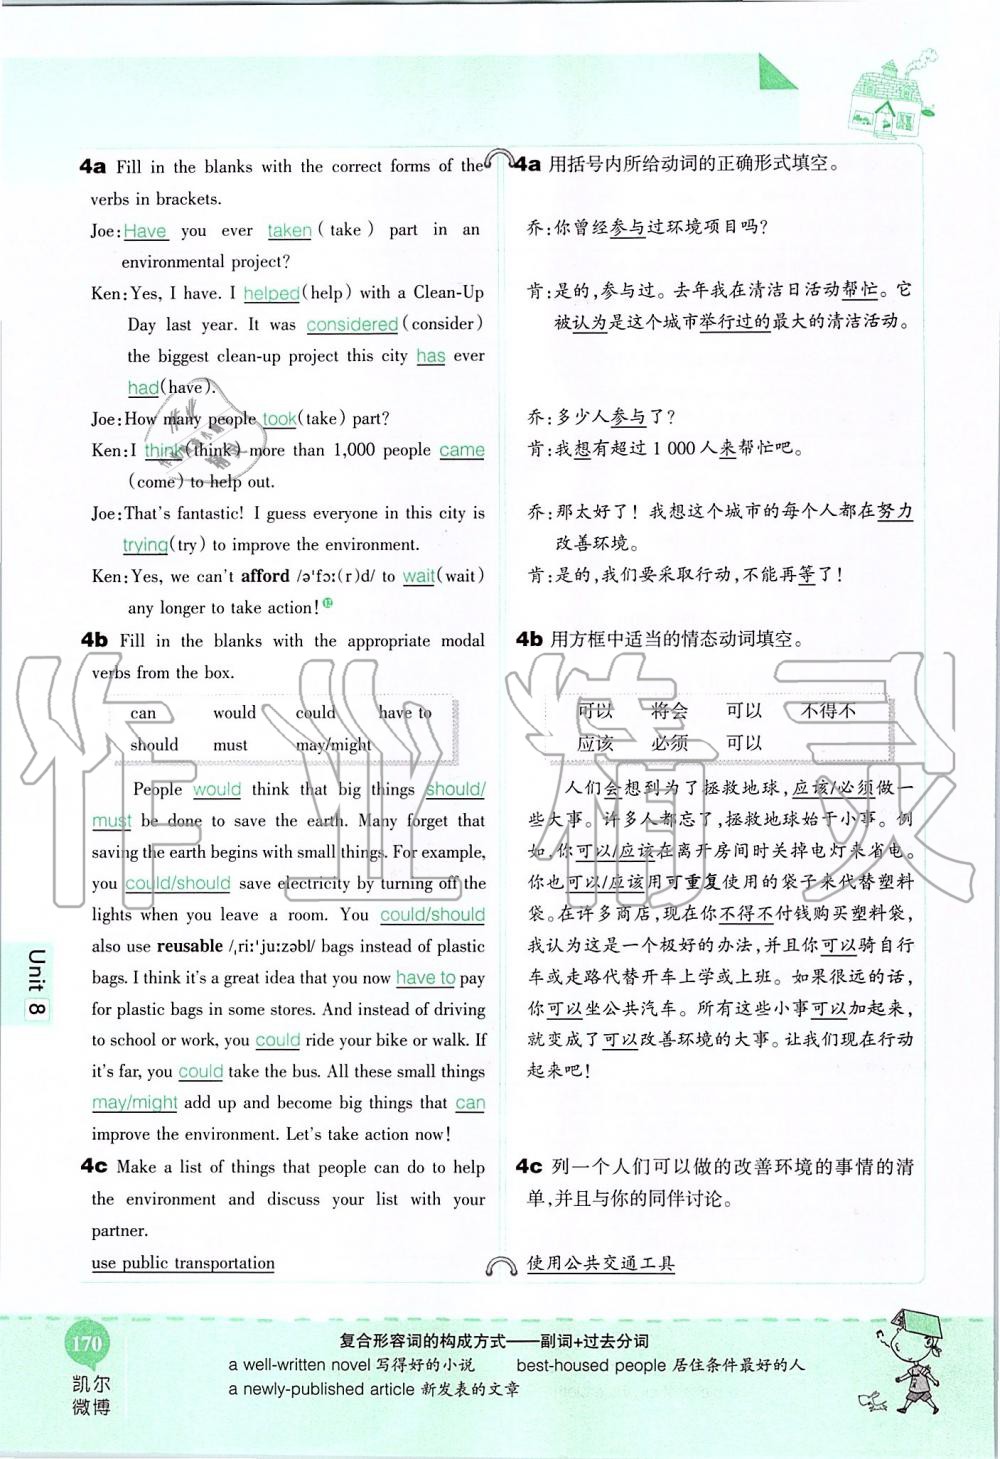 4a Fill in the blanks with the correct forms of the
verbs in brackets.
Joe:Have you ever taken(take) part in an
environmental project?
Ken:Yes, I have. I helped(help) with a Clean-Up
Day last year. It was considered(consider)
the biggest clean-up project this city has ever
had(have).
Joe:How many people took(take) part?
Ken:I think(think) more than 1,000 people came
(come) to help out.
Joe:That's fantastic! I guess everyone in this city is
trying(try) to improve the environment.
Ken:Yes, we can't afford /ə'fɔː(r)d/ to wait(wait)
any longer to take action!⑫
4b Fill in the blanks with the appropriate modal
verbs from the box.
can would could have to
should must may/might
People would think that big things should/
must be done to save the earth. Many forget that
saving the earth begins with small things. For example,
you could/should save electricity by turning off the
lights when you leave a room. You could/should
also use reusable /ˌriː'juːzəbl/ bags instead of plastic
bags. I think it's a great idea that you now have to pay
for plastic bags in some stores. And instead of driving
to school or work, you could ride your bike or walk. If
it's far, you could take the bus. All these small things
may/might add up and become big things that can
improve the environment. Let's take action now!
4c Make a list of things that people can do to help
the environment and discuss your list with your
partner.
use public transportation
4a 用括号内所给动词的正确形式填空。
乔:你曾经参与过环境项目吗?
肯:是的,参与过。去年我在清洁日活动帮忙。它
被认为是这个城市举行过的最大的清洁活动。
乔:多少人参与了?
肯:我想有超过 1 000 人来帮忙吧。
乔:那太好了! 我想这个城市的每个人都在努力
改善环境。
肯:是的,我们要采取行动,不能再等了!
4b 用方框中适当的情态动词填空。
可以 将会 可以 不得不
应该 必须 可以
人们会想到为了拯救地球,应该/必须做一
些大事。许多人都忘了,拯救地球始于小事。例
如,你可以/应该在离开房间时关掉电灯来省电。
你也可以/应该用可重复使用的袋子来代替塑料
袋。在许多商店,现在你不得不付钱购买塑料袋,
我认为这是一个极好的办法,并且你可以骑自行
车或走路代替开车上学或上班。如果很远的话,
你可以坐公共汽车。所有这些小事可以加起来,
就变成了可以改善环境的大事。让我们现在行动
起来吧!
4c 列一个人们可以做的改善环境的事情的清
单,并且与你的同伴讨论。
使用公共交通工具
Unit 8
作业精灵
170
凯尔
微博
复合形容词的构成方式——副词+过去分词
a well-written novel 写得好的小说 best-housed people 居住条件最好的人
a newly-published article 新发表的文章